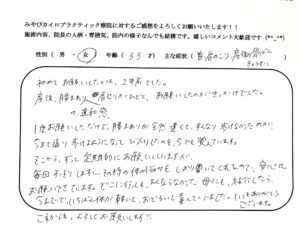 みやびカイロプラクティック療院に対するご感想をよろしくお願いいたします！！
施術内容、院長の人柄・雰囲気、院内の様子なんでも結構です。嬉しいコメント大歓迎です（*^-^*）
性別（男・女）年齢（33才）主な症状（首肩のこり、産後骨盤
きょうせい）
初めて お願いしたのは、2年前でした。
産後、膝まわりの違和感 肩こりがひどく、お願いしたのがきっかけでした。
1度お願いしただけで、膝まわりが全然違くて、すんなり歩けなかったのが
今まで通り歩けるようになって びっくりしたのを、今でも覚えています。
そこから、ずっと定期的にお願いしていますが、
毎回 すっきりしますし、その時の体の 悩みを しっかり 聞いてくれるので、安心して
お願いできています。どこに行っても、よくならなかった 母にも、紹介したら、
今までで、いちばん体が軽いって、おどろいて 喜んでいました。いつもありがとう
ございます。
これからも、よろしくお願いします!!